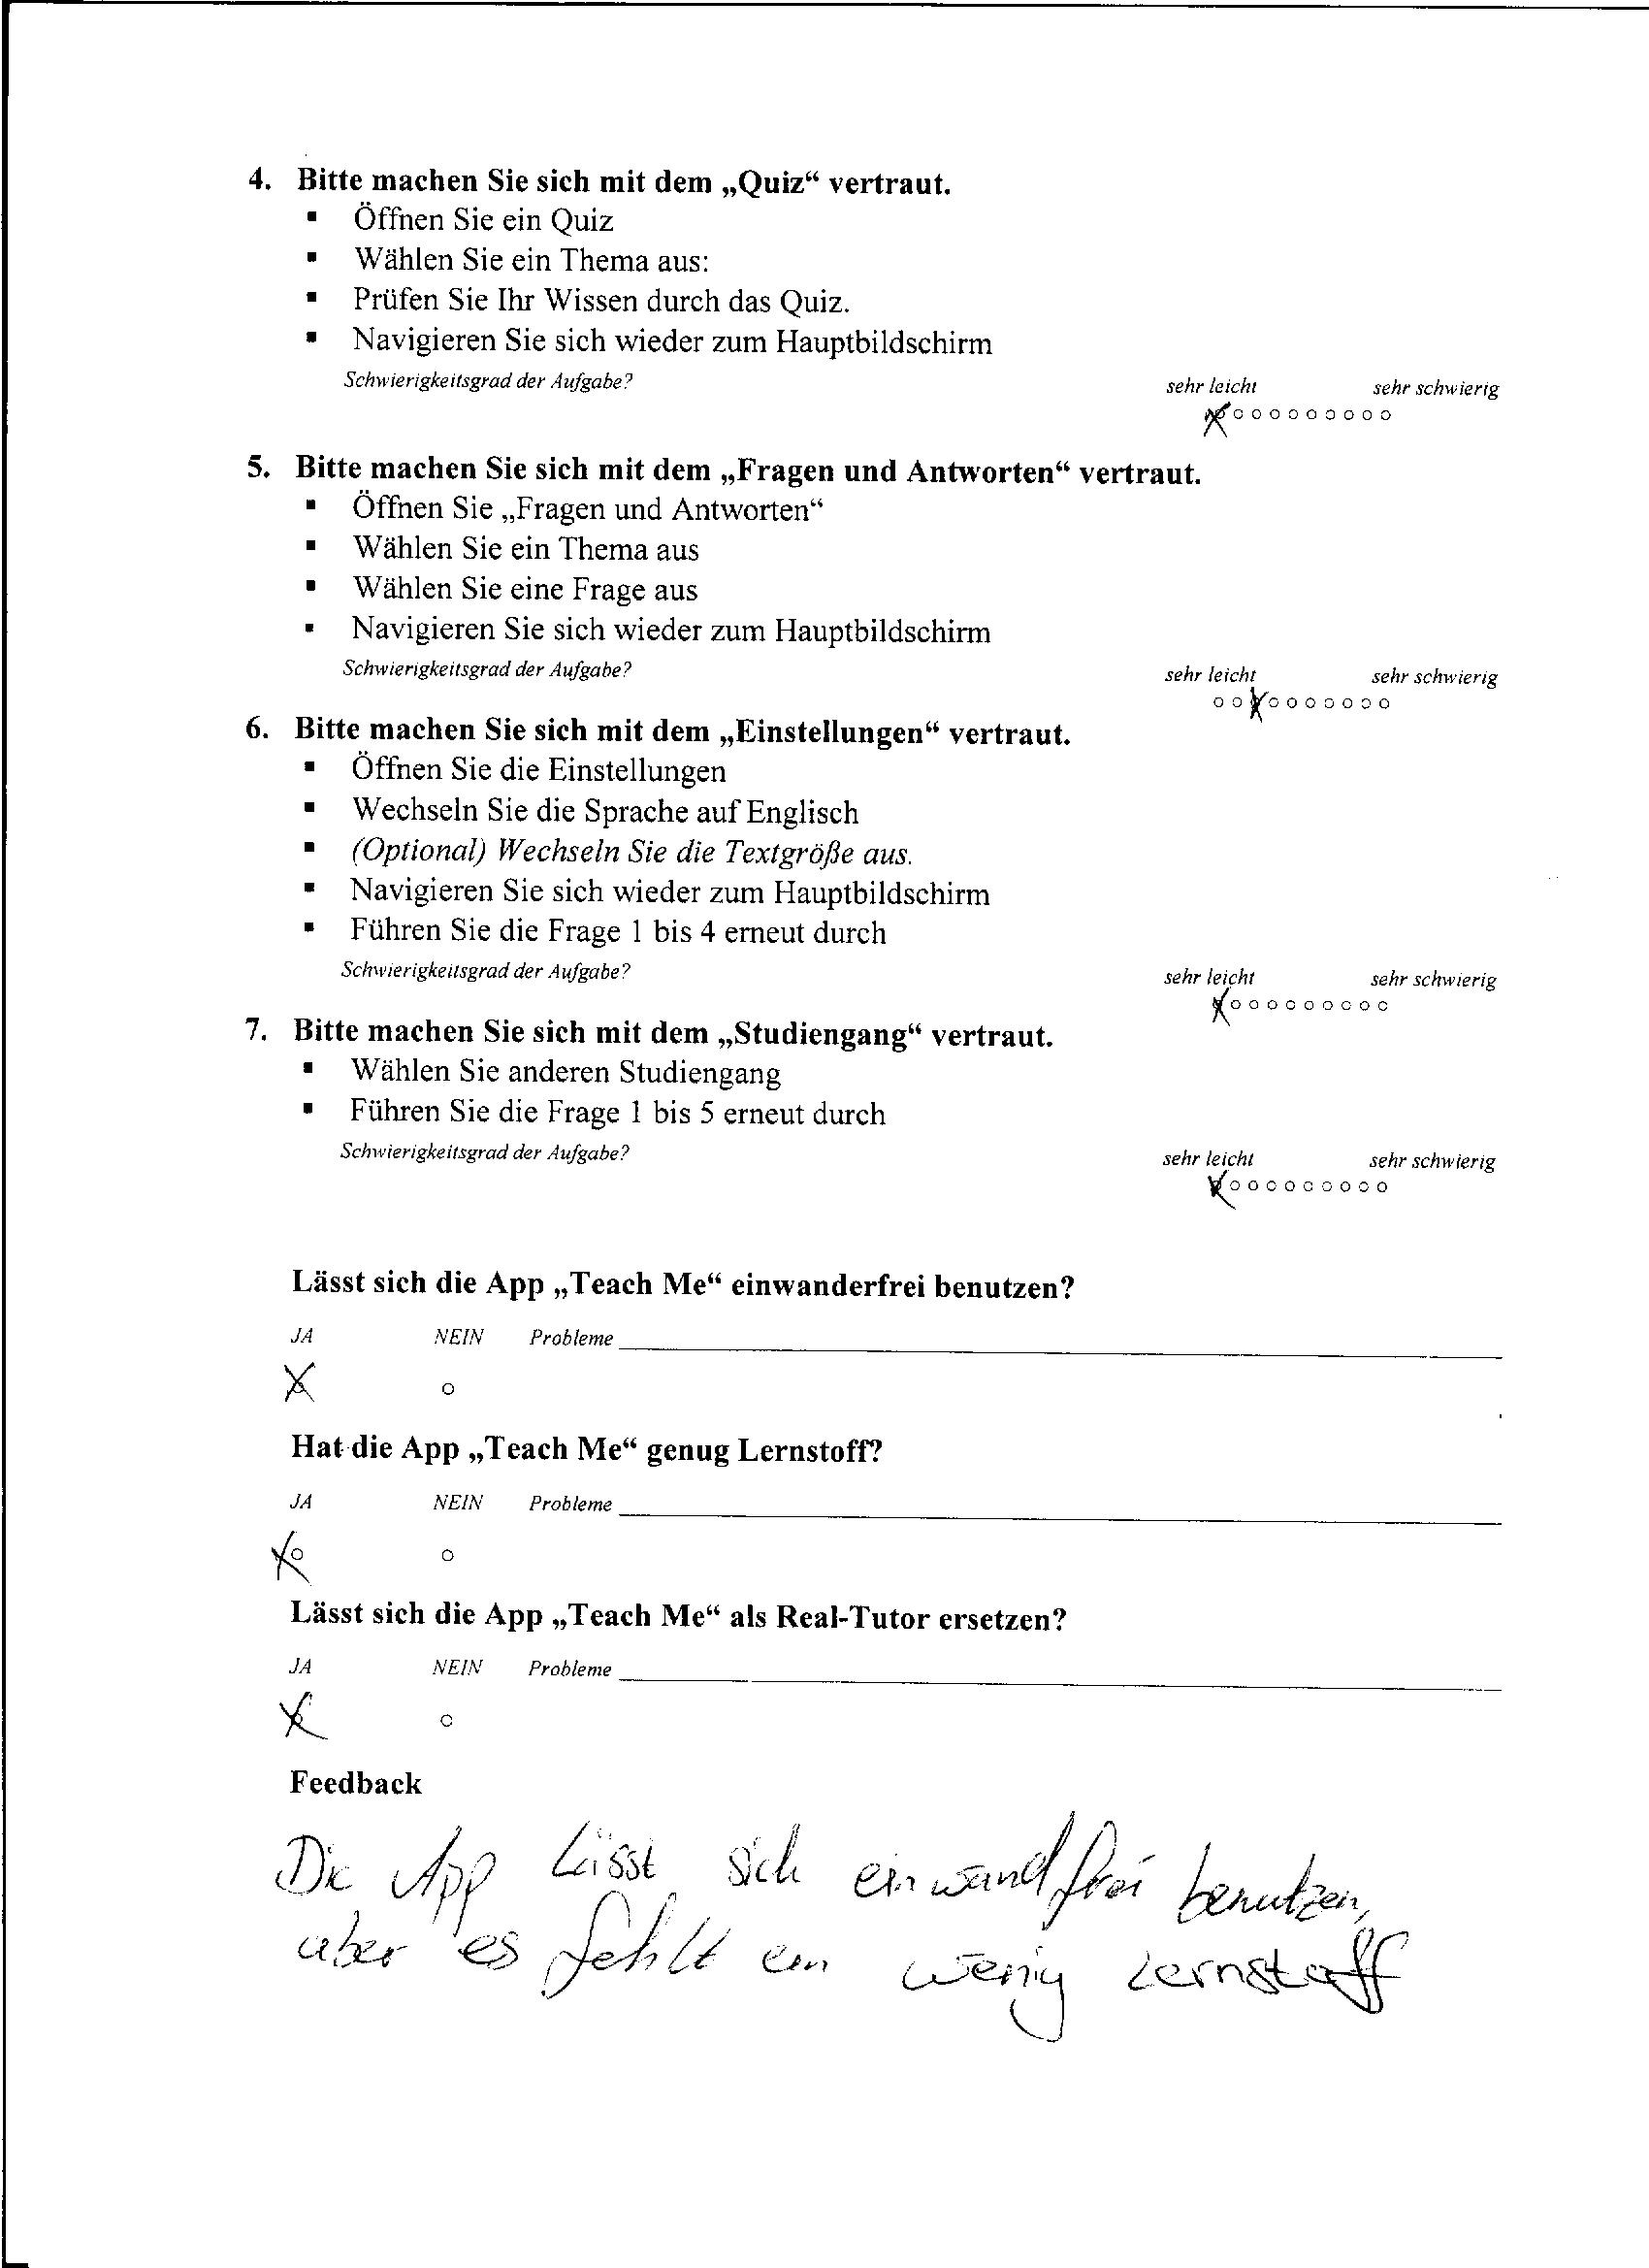 4. Bitte machen Sie sich mit dem „Quiz“ vertraut.
▪ Öffnen Sie ein Quiz
▪ Wählen Sie ein Thema aus:
▪ Prüfen Sie Ihr Wissen durch das Quiz.
▪ Navigieren Sie sich wieder zum Hauptbildschirm
Schwierigkeitsgrad der Aufgabe? sehr leicht sehr schwierig
5. Bitte machen Sie sich mit dem „Fragen und Antworten“ vertraut.
▪ Öffnen Sie „Fragen und Antworten“
▪ Wählen Sie ein Thema aus
▪ Wählen Sie eine Frage aus
▪ Navigieren Sie sich wieder zum Hauptbildschirm
Schwierigkeitsgrad der Aufgabe? sehr leicht sehr schwierig
6. Bitte machen Sie sich mit dem „Einstellungen“ vertraut.
▪ Öffnen Sie die Einstellungen
▪ Wechseln Sie die Sprache auf Englisch
▪ (Optional) Wechseln Sie die Textgröße aus.
▪ Navigieren Sie sich wieder zum Hauptbildschirm
▪ Führen Sie die Frage 1 bis 4 erneut durch
Schwierigkeitsgrad der Aufgabe? sehr leicht sehr schwierig
7. Bitte machen Sie sich mit dem „Studiengang“ vertraut.
▪ Wählen Sie anderen Studiengang
▪ Führen Sie die Frage 1 bis 5 erneut durch
Schwierigkeitsgrad der Aufgabe? sehr leicht sehr schwierig
Lässt sich die App „Teach Me“ einwanderfrei benutzen?
JA NEIN Probleme
Hat die App „Teach Me“ genug Lernstoff?
JA NEIN Probleme
Lässt sich die App „Teach Me“ als Real-Tutor ersetzen?
JA NEIN Probleme
Feedback
Die App Lässt sich einwandfrei benutzen,
aber es fehlt ein wenig Lernstoff